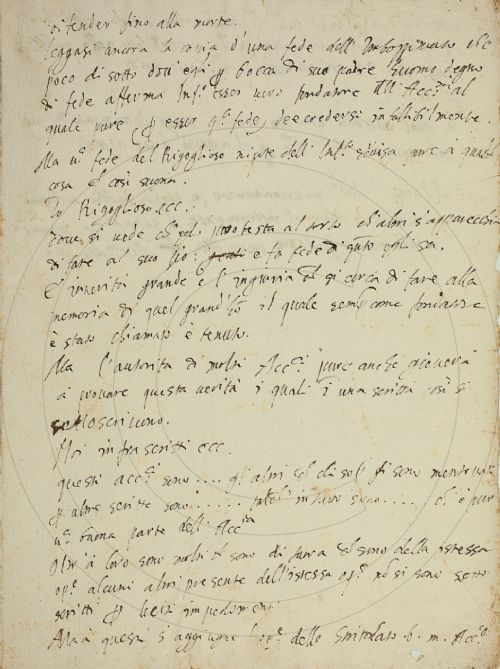 difender fino alla morte.
leggasi ancora la copia d'una fede dell'Imborrimato che
poco di sotto dove egli p bocca di suo padre huomo degno
di fede afferma Inf.º esser vero fondatore dll'Acc.ª al
quale pure p esser q.ª fede, dee credersi infallibilmente.
Ma u.ª fede del Rigoglioso nipote dell'Inf.º
cosa e così suona.
Io Rigoglioso ecc.
dove si vede ch'egli protesta al torto ch'altri s'apparecchia
di fare al suo zio: e fa fede di tutto
E' grande e l'ingiuria ch si cerca di fare alla
memoria di quel grand' il quale sempre come fondatore
è stato chiamato e tenuto.
Ma l'autorità di molti Acc.ⁱ pure anche gioverà
a provare questa verità i quali i una scritta così si
sottoscrivono.
Noi infrascritti ecc.
questi acc.ⁱ sono .... gl'altri ch di sopra si sono
p altre scritte sono ...... in tutto sono ..... ch'è pur
u.ª buona parte dell'Acc.ia
Oltr'a loro sono molti ch sono di fuora ch sono della istessa
op.ᵉ alcuni altri presente dell'istessa op.ᵉ nō si sono sotto
scritti p impedimenti
Ma a questa s'aggiugne l'op.ᵉ dello b. m. Acc.º